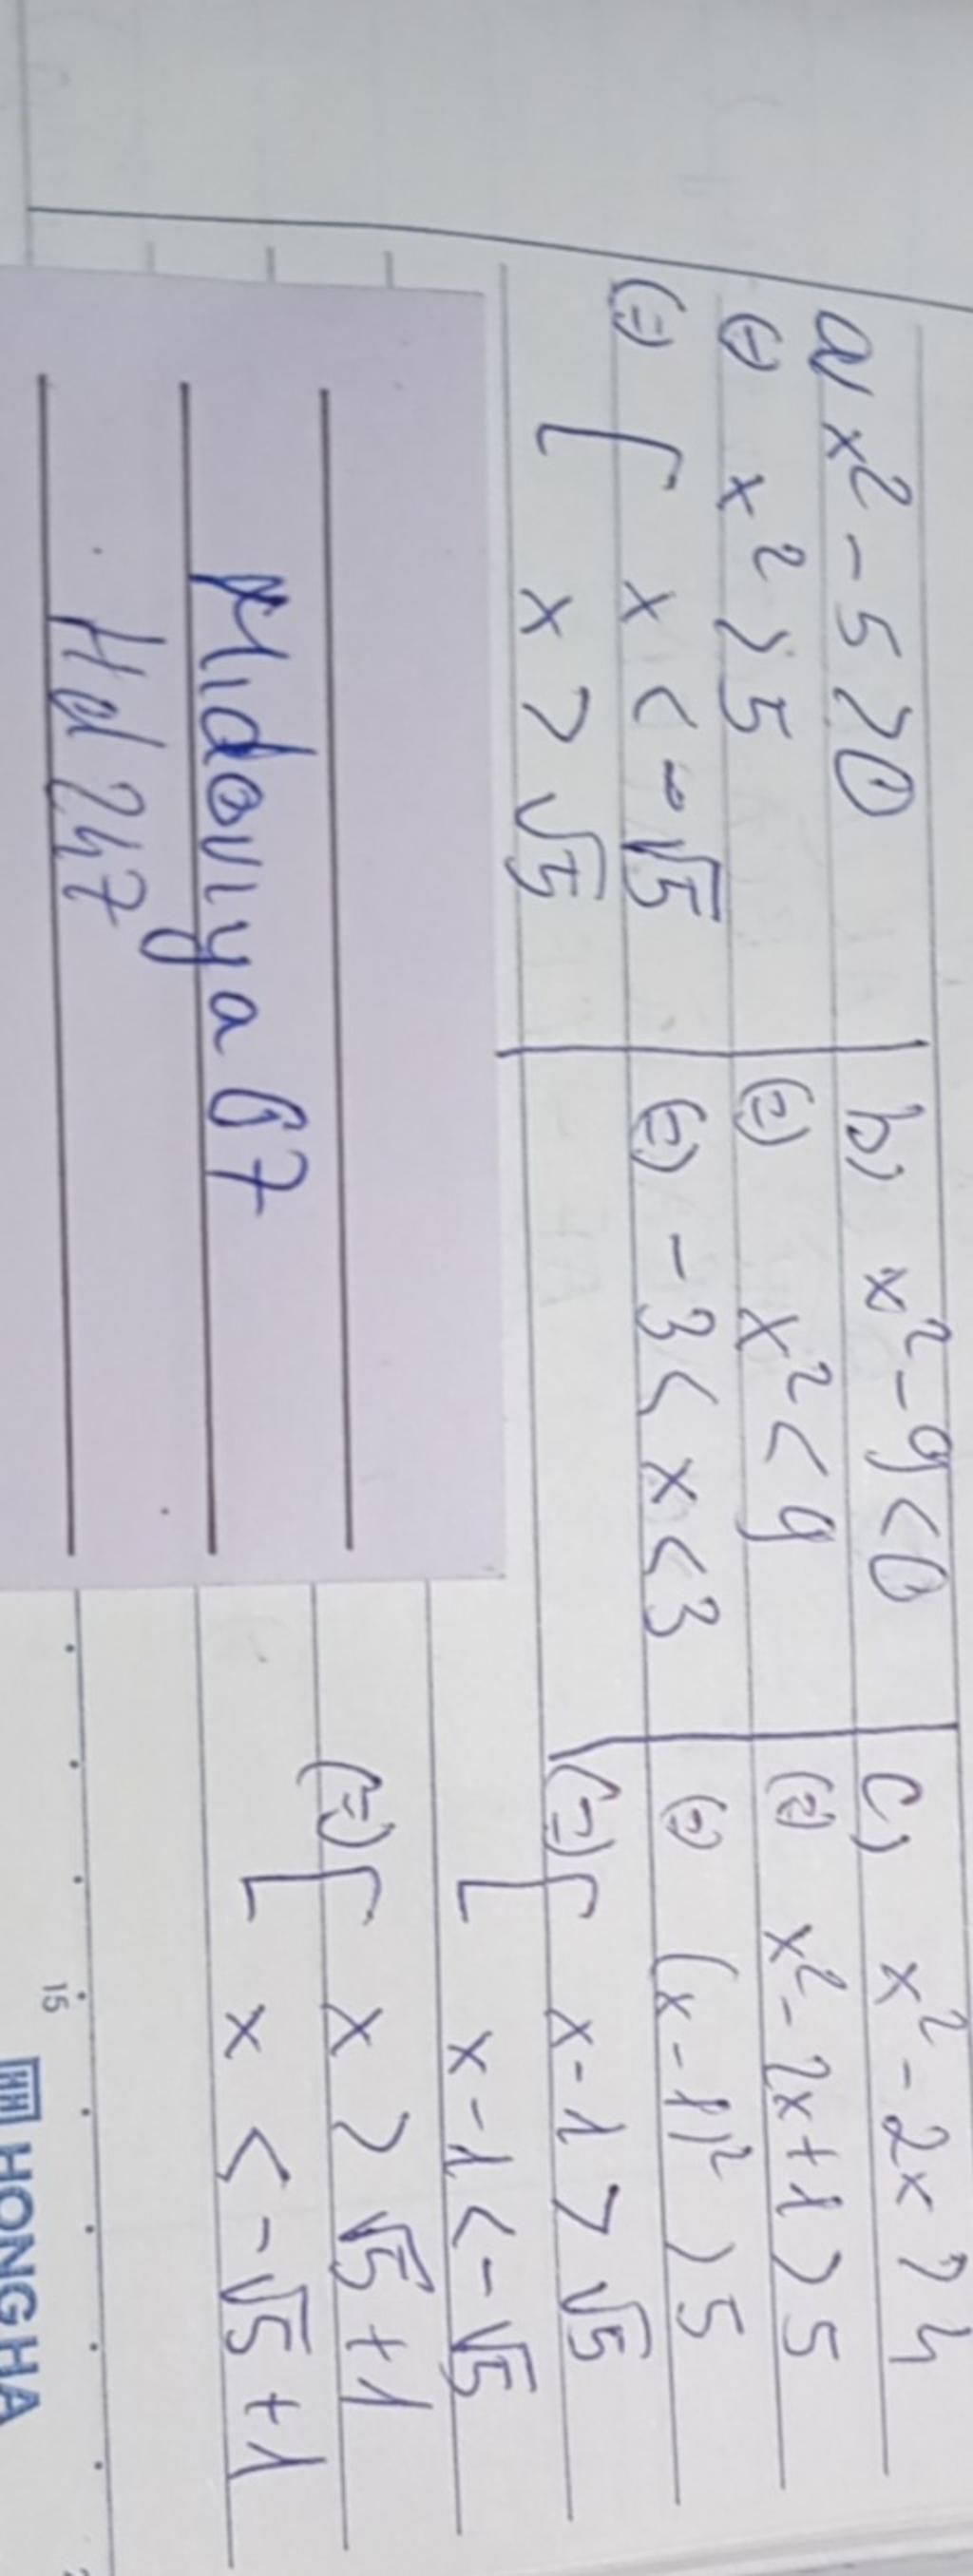 a) x² - 5 > 0
(=) x² > 5
(=) [ x < -√5
x > √5
b) x² - 9 < 0
(=) x² < 9
(=) -3 < x < 3
c) x² - 2x > 4
(=) x² - 2x + 1 > 5
(=) (x - 1)² > 5
(=) [ x - 1 > √5
x - 1 < -√5
(=) [ x > √5 + 1
x < -√5 + 1
Midoriya 67
Hd 247
15
HH HONG HA